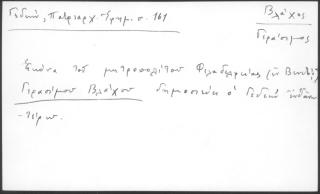 Γεδεών, Πατριαρχ. Ἐφημ. σ. 161
Βλάχος
Γεράσιμος
Εἰκόνα τοῦ μητροπολίτου Φιλαδελφείας (ἐν Βενετίᾳ)
Γερασίμου Βλάχου δημοσιεύει ὁ Γεδεὼν